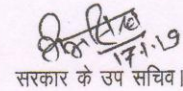 17.1.19
सरकार के उप सचिव।